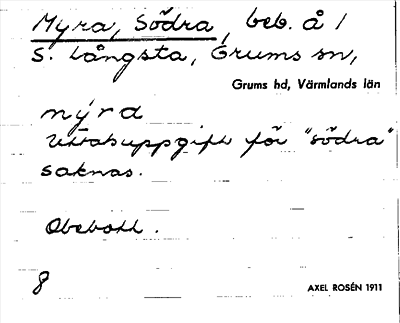 Myra, Södra, beb. å 1
S. Långsta, Grums sn,
Grums hd, Värmlands län
mýra
Uttalsuppgift för "södra"
saknas.
Obebott.
8
AXEL ROSÉN 1911